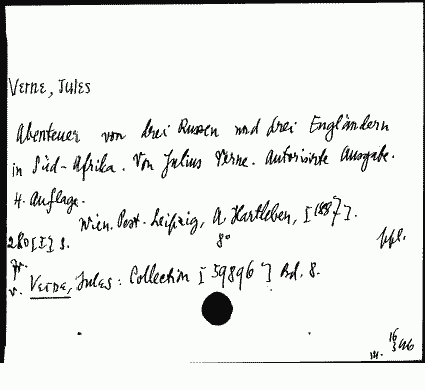 Verne, Jules
Abenteuer von drei Russen und drei Engländern
in Süd-Afrika. Von Julius Verne. Autorisirte Ausgabe.
4. Auflage.
Wien. Pest. Leipzig, A. Hartleben, [1887].
280 [I] S. 8° ppl.
Verne, Jules: Collection [59896] Bd. 8.